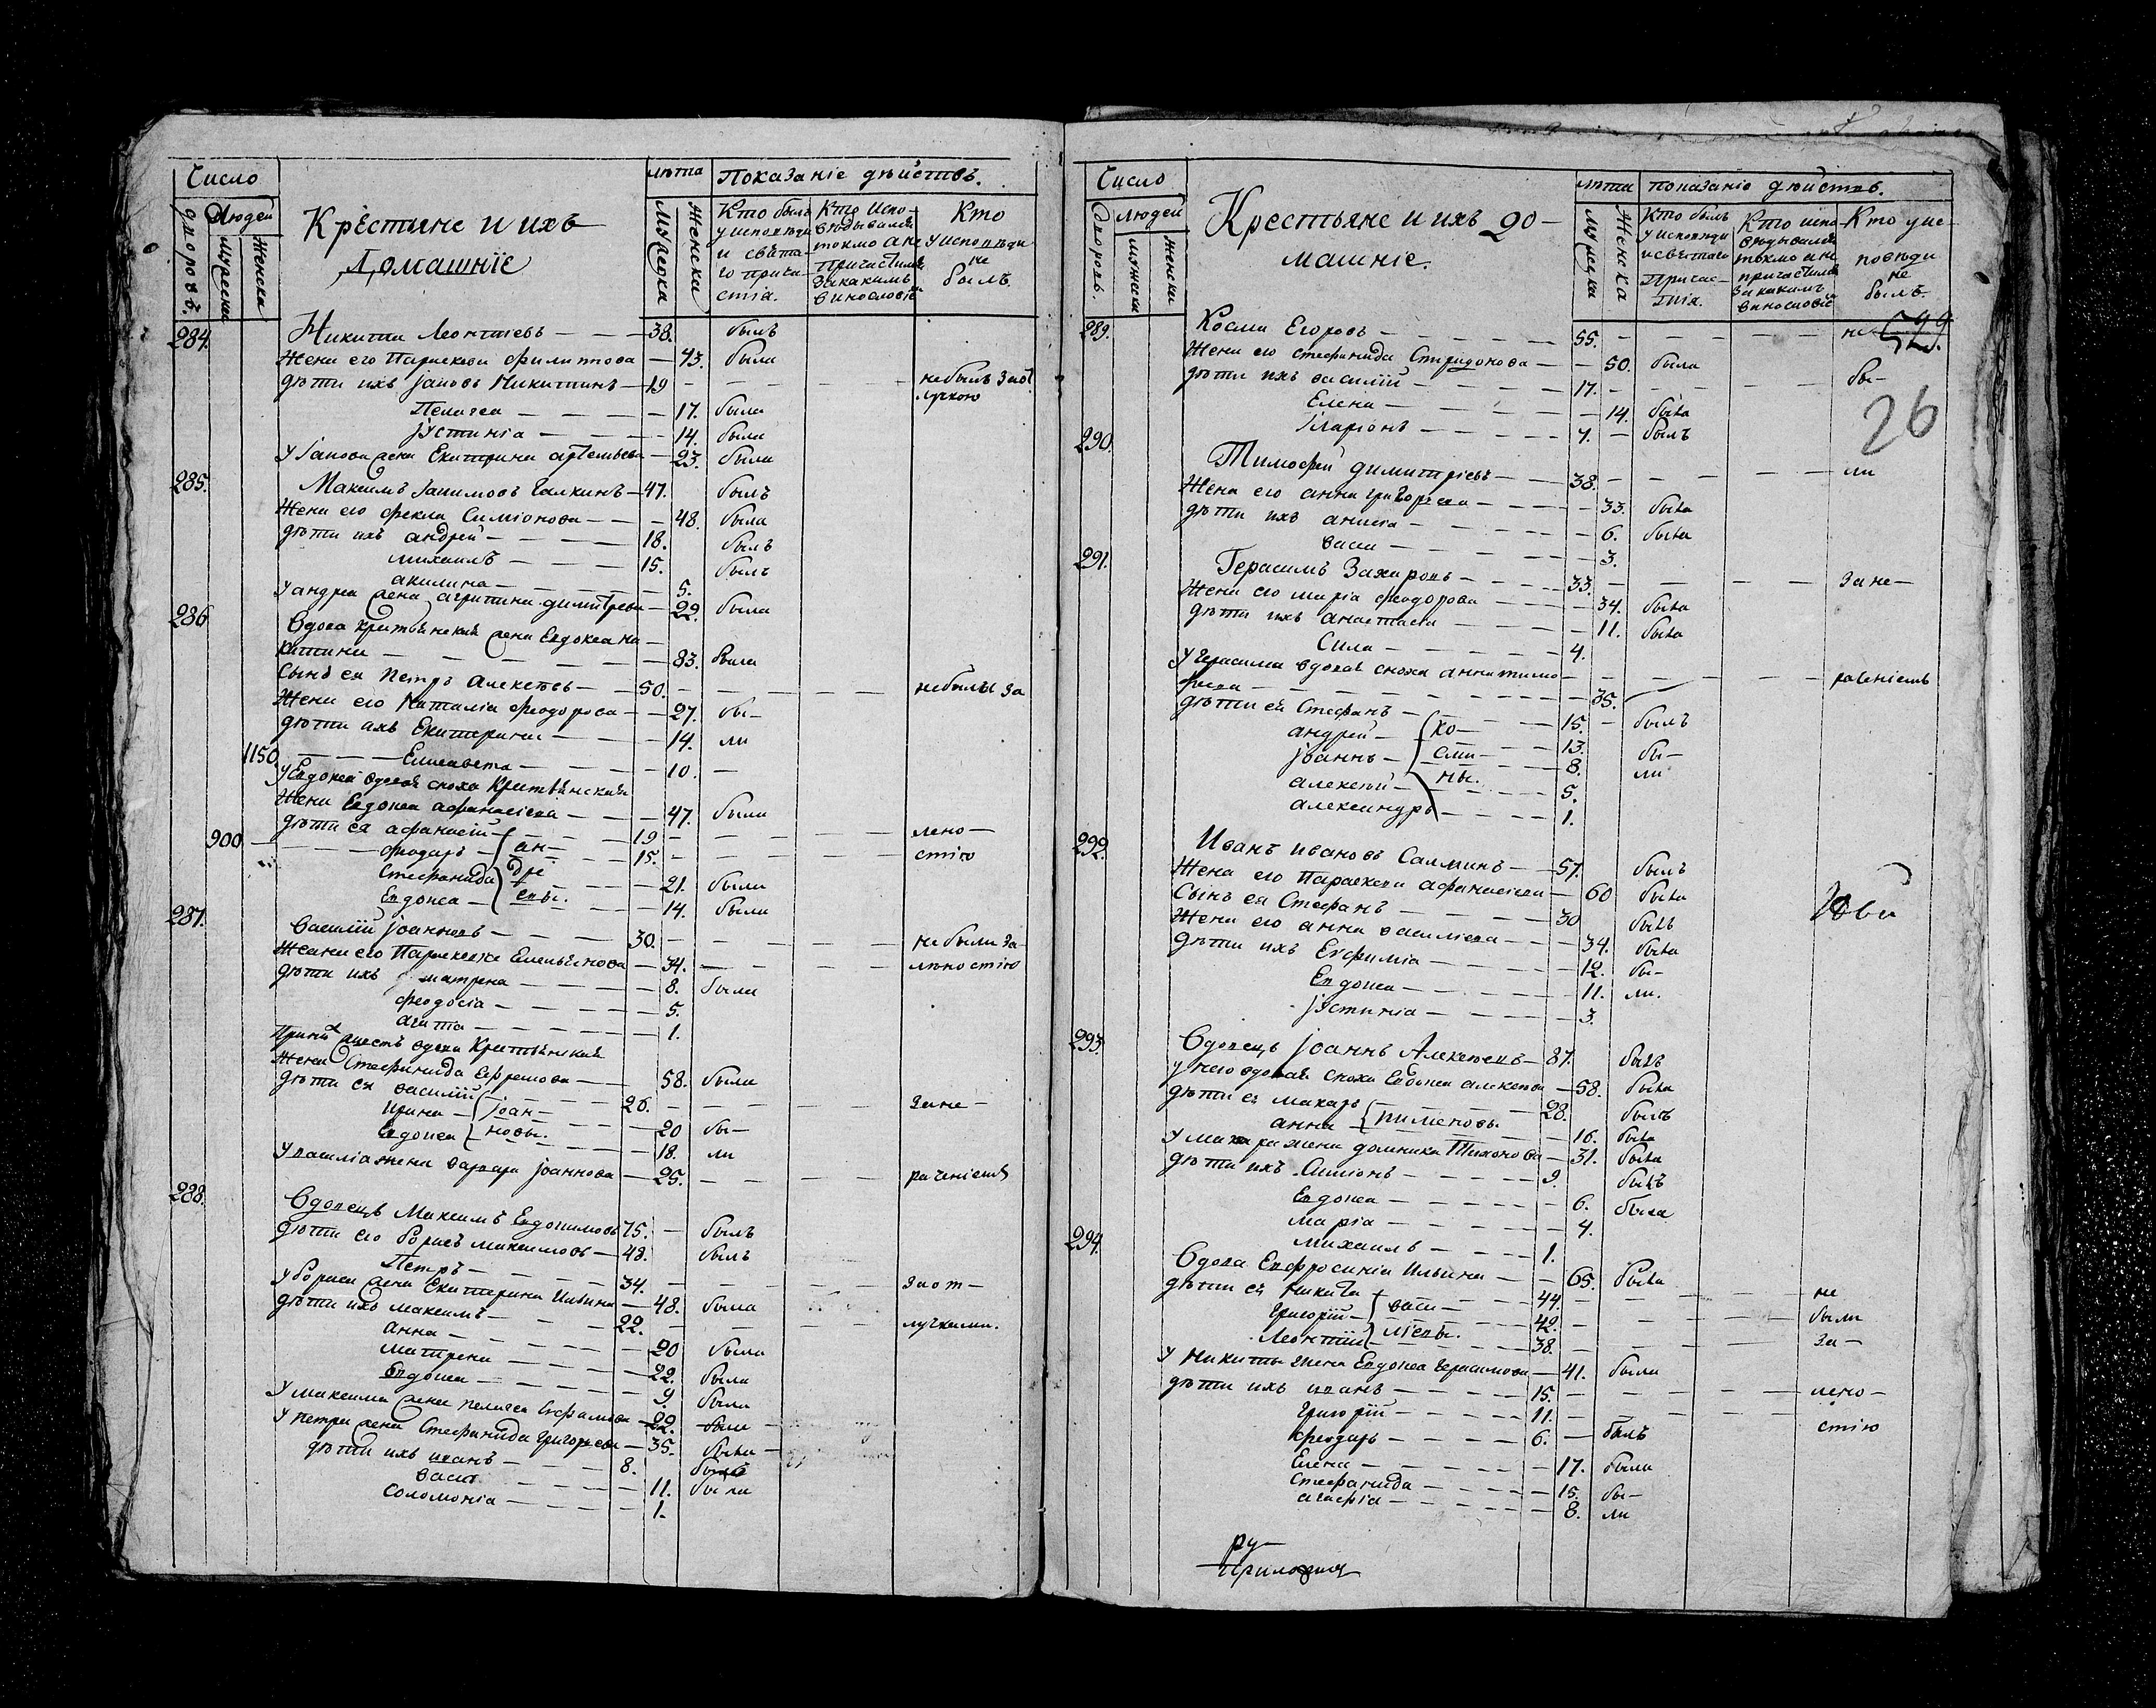 Число
Людей
дворовъ.
мужеска
женска
Крестяне и ихъ
Домашніе
лѣта
Мужеска
Женска
Показаніе дѣйствъ.
Кто былъ у исповѣди и свята-го прича-стія.
Кто испо-вѣдывался токмо а не причастился за какимъ винословіе
Кто у исповѣди не былъ.
284. Никита Леонтіевъ — 38. былъ
Жена его Параскева Филиппова — 43. была
дѣти ихъ Іаковъ Никитинъ — 19 — небылъ за от
лучкою
Пелагеа — 17. была
Іустиніа — 14. была
У Іакова жена Екатерина — 23. была
285. Максимъ Галкинъ — 47. былъ
Жена его Фекла Симіонова — 48. была
дѣти ихъ андрей — 18. былъ
михаилъ — 15. былъ
акилина — 5.
У андреа жена агрипина димитрева — 22. была
286 Вдова крестьянская жена Евдокеа ни
китина — 83. была
Сынъ ея Петръ алексѣевъ — 50. — небылы за
Жена его Наталіа Феодорова — 27. бы-
дѣти ихъ Екатерина — 14. ли
1150 Елисавета — 10. —
У Евдокеи вдовая сноха Крестьянская
Жена Евдокеа афанасіева — 47. была
дѣти ея афанасій — 19 — лено-
900 феодоръ — ан- 15. — стію
Стефанида дре 21. была
Евдокеа — евы. 14. была
287. Василій Іоанновъ — 30. — не были за-
Жена его Параскева Емельянова — 34. — леностію
дѣти ихъ матрена — 8. была
феодосіа — 5.
агита — 1.
вдова Крестьянская
Жена Стефанида Ефремова — 58. была
дѣти ея василій — 26. — зане-
ирина — іоан- 20 бы-
Евдокеа новы. 18. ли
У василіа жена варвара Іоаннова — 25. — раченіемъ
288. Вдовецъ Максимъ Евдокимовъ 75. — былъ
дѣти его борисъ максимовъ — 48. былъ
Петръ — 34. — за от-
У бориса жена Екатерина Ильина — 48. была
дѣти ихъ максимъ — 22. — лучками.
анна — 20 была
матрена — 22. была
Евдокеа — 9. была
У максима жена пелагеа — 22. была
У петра жена Стефанида григорьева — 35. была
дѣти ихъ иванъ — 8. былъ
васса — 11. была
Соломоніа — 1.
Число
людей
Дворовъ.
мужеска
женска
Крестьяне и ихъ до-
машніе.
лѣта
Мужеска
Женска
показаніе дѣйствъ.
Кто былъ у исповѣди и святаго Причас-тіа.
Кто испо-вѣдывался токмо а не причастился за какимъ винословіе
Кто у ис-повѣди не былъ.
529.
26
289. Косма Егоровъ — 55. — не
Жена его стефанида Спиридонова — 50. была
дѣти ихъ василій — 17. — бы-
Елена — 14. была
Іларіонъ — 7. — былъ
290. Тимофей димитріевъ — 38. — ли
Жена его анна григорьева — 33. была
дѣти ихъ анисіа — 6. была
васса — 3.
291. Герасимъ Захаровъ — 33. — за не-
Жена его маріа феодорова — 34. была
дѣти ихъ анастасіа — 11. была
Сила — 4.
У герасима вдовая сноха анна тимо
феева — 35. — раченіемъ
дѣти ея Стефанъ — 15. — былъ
андрей — ко- 13. бы-
іоаннъ — сми- 8. ли
алексѣй — ны. 5.
александръ — 1.
292. Иванъ ивановъ Салминъ — 57. былъ
Жена его Параскева афанасіева — 60 была
Сынъ ея Стефанъ — 30 былъ
Жена его анна василіева — 34. была
дѣти ихъ Евфиміа — 12. бы-
Евдокеа — 11. ли.
іустиніа — 3.
293. Вдовецъ Іоаннъ Алексѣевъ — 87. былъ
У него вдовая сноха Евдокеа алексѣва — 58. была
дѣти ея макаръ — 28. былъ
анна пименовы. 16. была
У макара жена домника Тихонова — 31. была
дѣти ихъ Симіонъ — 9. былъ
Евдокеа — 6. была
маріа — 4.
михаилъ — 1.
294. Вдова Евфросиніа Ильина — 65. была
дѣти ея Никита — 44. — не
григорій — васи- 42. — были
Леонтій ліевы. 38. — за-
У Никиты жена Евдокеа герасимова — 41. была
дѣти ихъ иванъ — 15. — лено-
григорій — 11. — стію
феодоръ — 6. — былъ
Елена — 17. была
Стефанида — 15. бы-
агафіа — 8. ли
ру-
приложил